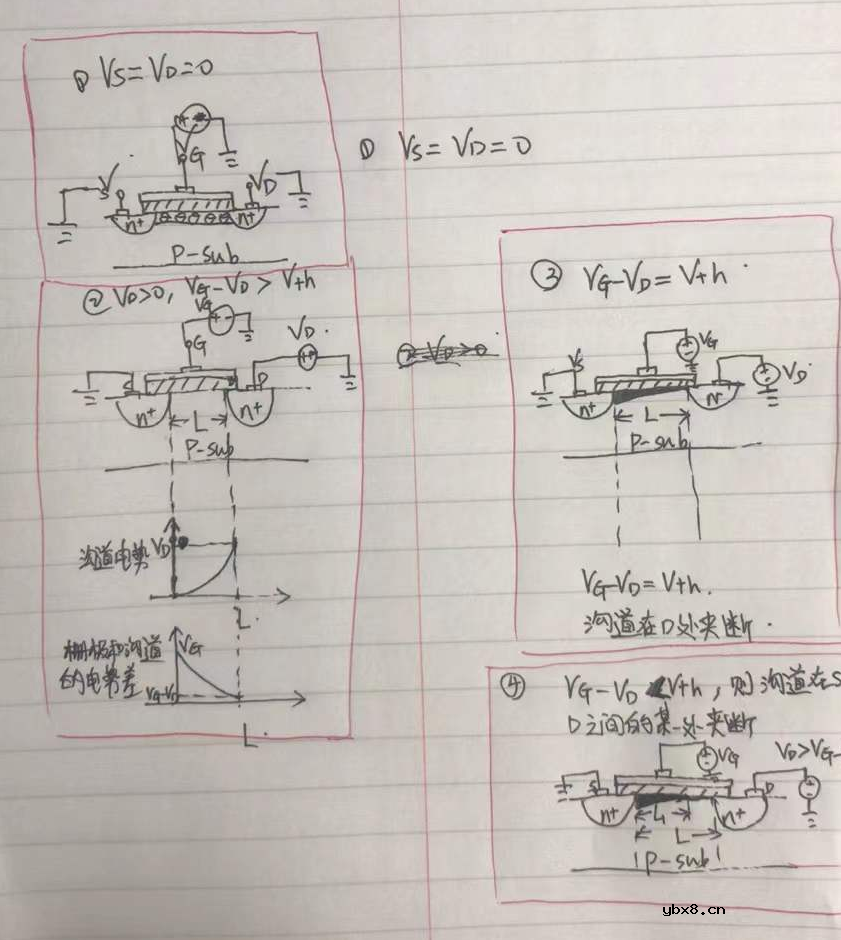 ① VS=VD=0
G
VS
VD
n+
n+
P-sub
① VS=VD=0
② VD>0, VG-VD>Vth
VG
G
VD
S
D
n+
L
n+
P-sub
沟道电势
VD
L
栅极和沟道
的电势差
VG
VG-VD
L
② VD>0
③ VG-VD=Vth
VS
VG
VD
n+
L
n+
P-sub
VG-VD=Vth.
沟道在D处夹断.
④ VG-VD<Vth, 则沟道在S
D之间的某一处夹断
VG
VD>VG-
S
D
n+
L1
n+
L
P-sub
ybx8.cn